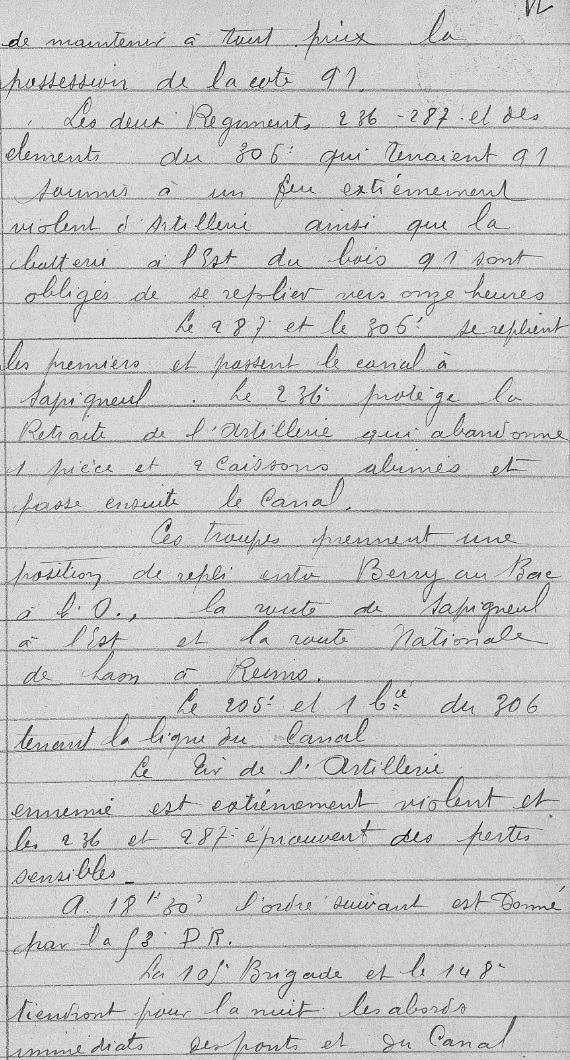 de maintenir à tout prix la
possession de la cote 91.
Les deux Regiments 236 - 287 et des
elements du 306e qui tenaient 91
soumis à un feu extrêmement
violent d'Artillerie ainsi que la
batterie à l'Est du bois 91 sont
obligés de se replier vers onze heures
Le 287e et le 306e se replient
les premiers et passent le canal à
Sapigneul. Le 236e protège la
Retraite de l'Artillerie qui abandonne
1 pièce et 2 Caissons abimés et
passe ensuite le Canal.
Ces troupes prennent une
position de repli entre Berry au Bac
à l'O., la route de Sapigneul
à l'Est et la route Nationale
de Laon à Reims.
Le 205e et 1 Cie du 306
tenant la ligne du Canal
Le Tir de l'Artillerie
ennemie est extrêmement violent et
les 236 et 287e éprouvent des pertes
sensibles_
A 18h 30' l'ordre suivant est Donné
par la 53e DR.
La 105e Brigade et le 148e
tiendront pour la nuit les abords
immédiats des ponts et du Canal